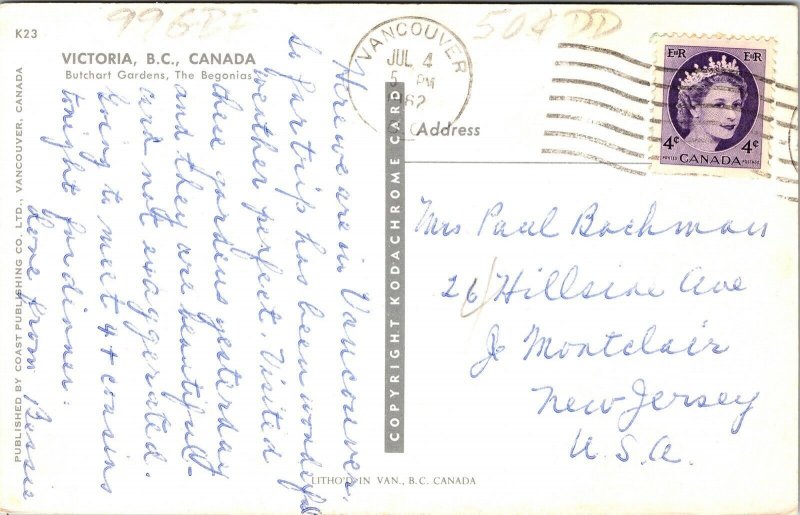 99GBI
50¢ DD
K23
VICTORIA, B.C., CANADA
Butchart Gardens, The Begonias
PUBLISHED BY COAST PUBLISHING CO. LTD., VANCOUVER, CANADA
Here we are in Vancouver.
So far trip has been wonderful
weather perfect. Visited
these gardens yesterday
and they are beautiful-
and not exaggerated.
Going to meet 4 cousins
tonight for dinner.
Love from Bessie
COPYRIGHT KODACHROME CARD
LITHO'D IN VAN., B.C. CANADA
VANCOUVER
JUL 4
5 PM
1962
Address
E II R
E II R
4¢
4¢
CANADA
POSTES
POSTAGE
Mrs Paul Bachman
26 Hillside Ave
Montclair
New Jersey
U.S.A.